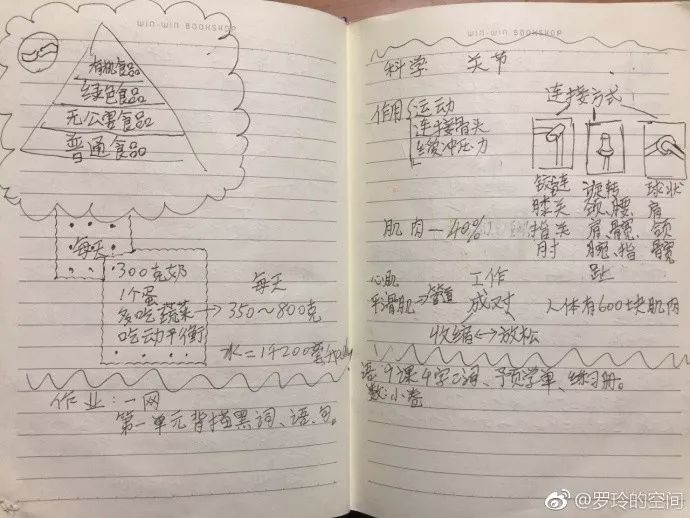 WIN-WIN BOOKSHOP
有机食品
绿色食品
无公害食品
普通食品
每天
300克奶
1个蛋
多吃蔬菜→350~800克
吃动平衡
每天
水=1200毫升
作业:一网
第一单元背描黑词、语、句。
WIN-WIN BOOKSHOP
科学 关节
作用 运动
连接骨头
缓冲压力
连接方式
铰链 旋转 球状
膝关 颈、腰、肩
指关 肩、髋、颌
肘 腕、指 髋
趾
肌肉—40%
心肌 工作
平滑肌→管道 成对 人体有600块肌肉
收缩↔放松
语:9课4字三词、予页学单、练习册。
数:小卷
@罗玲的空间